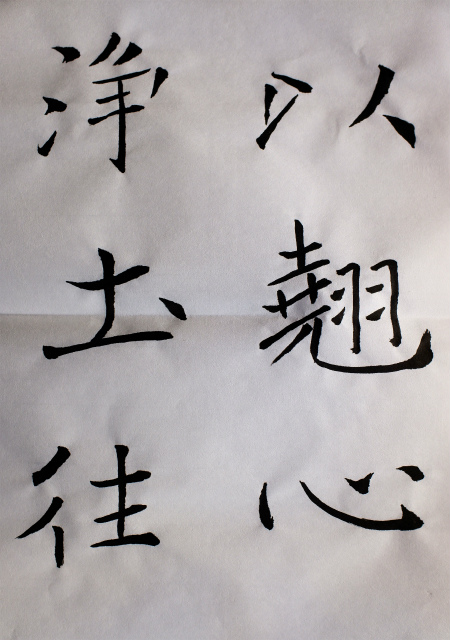 以翹心
浄土往